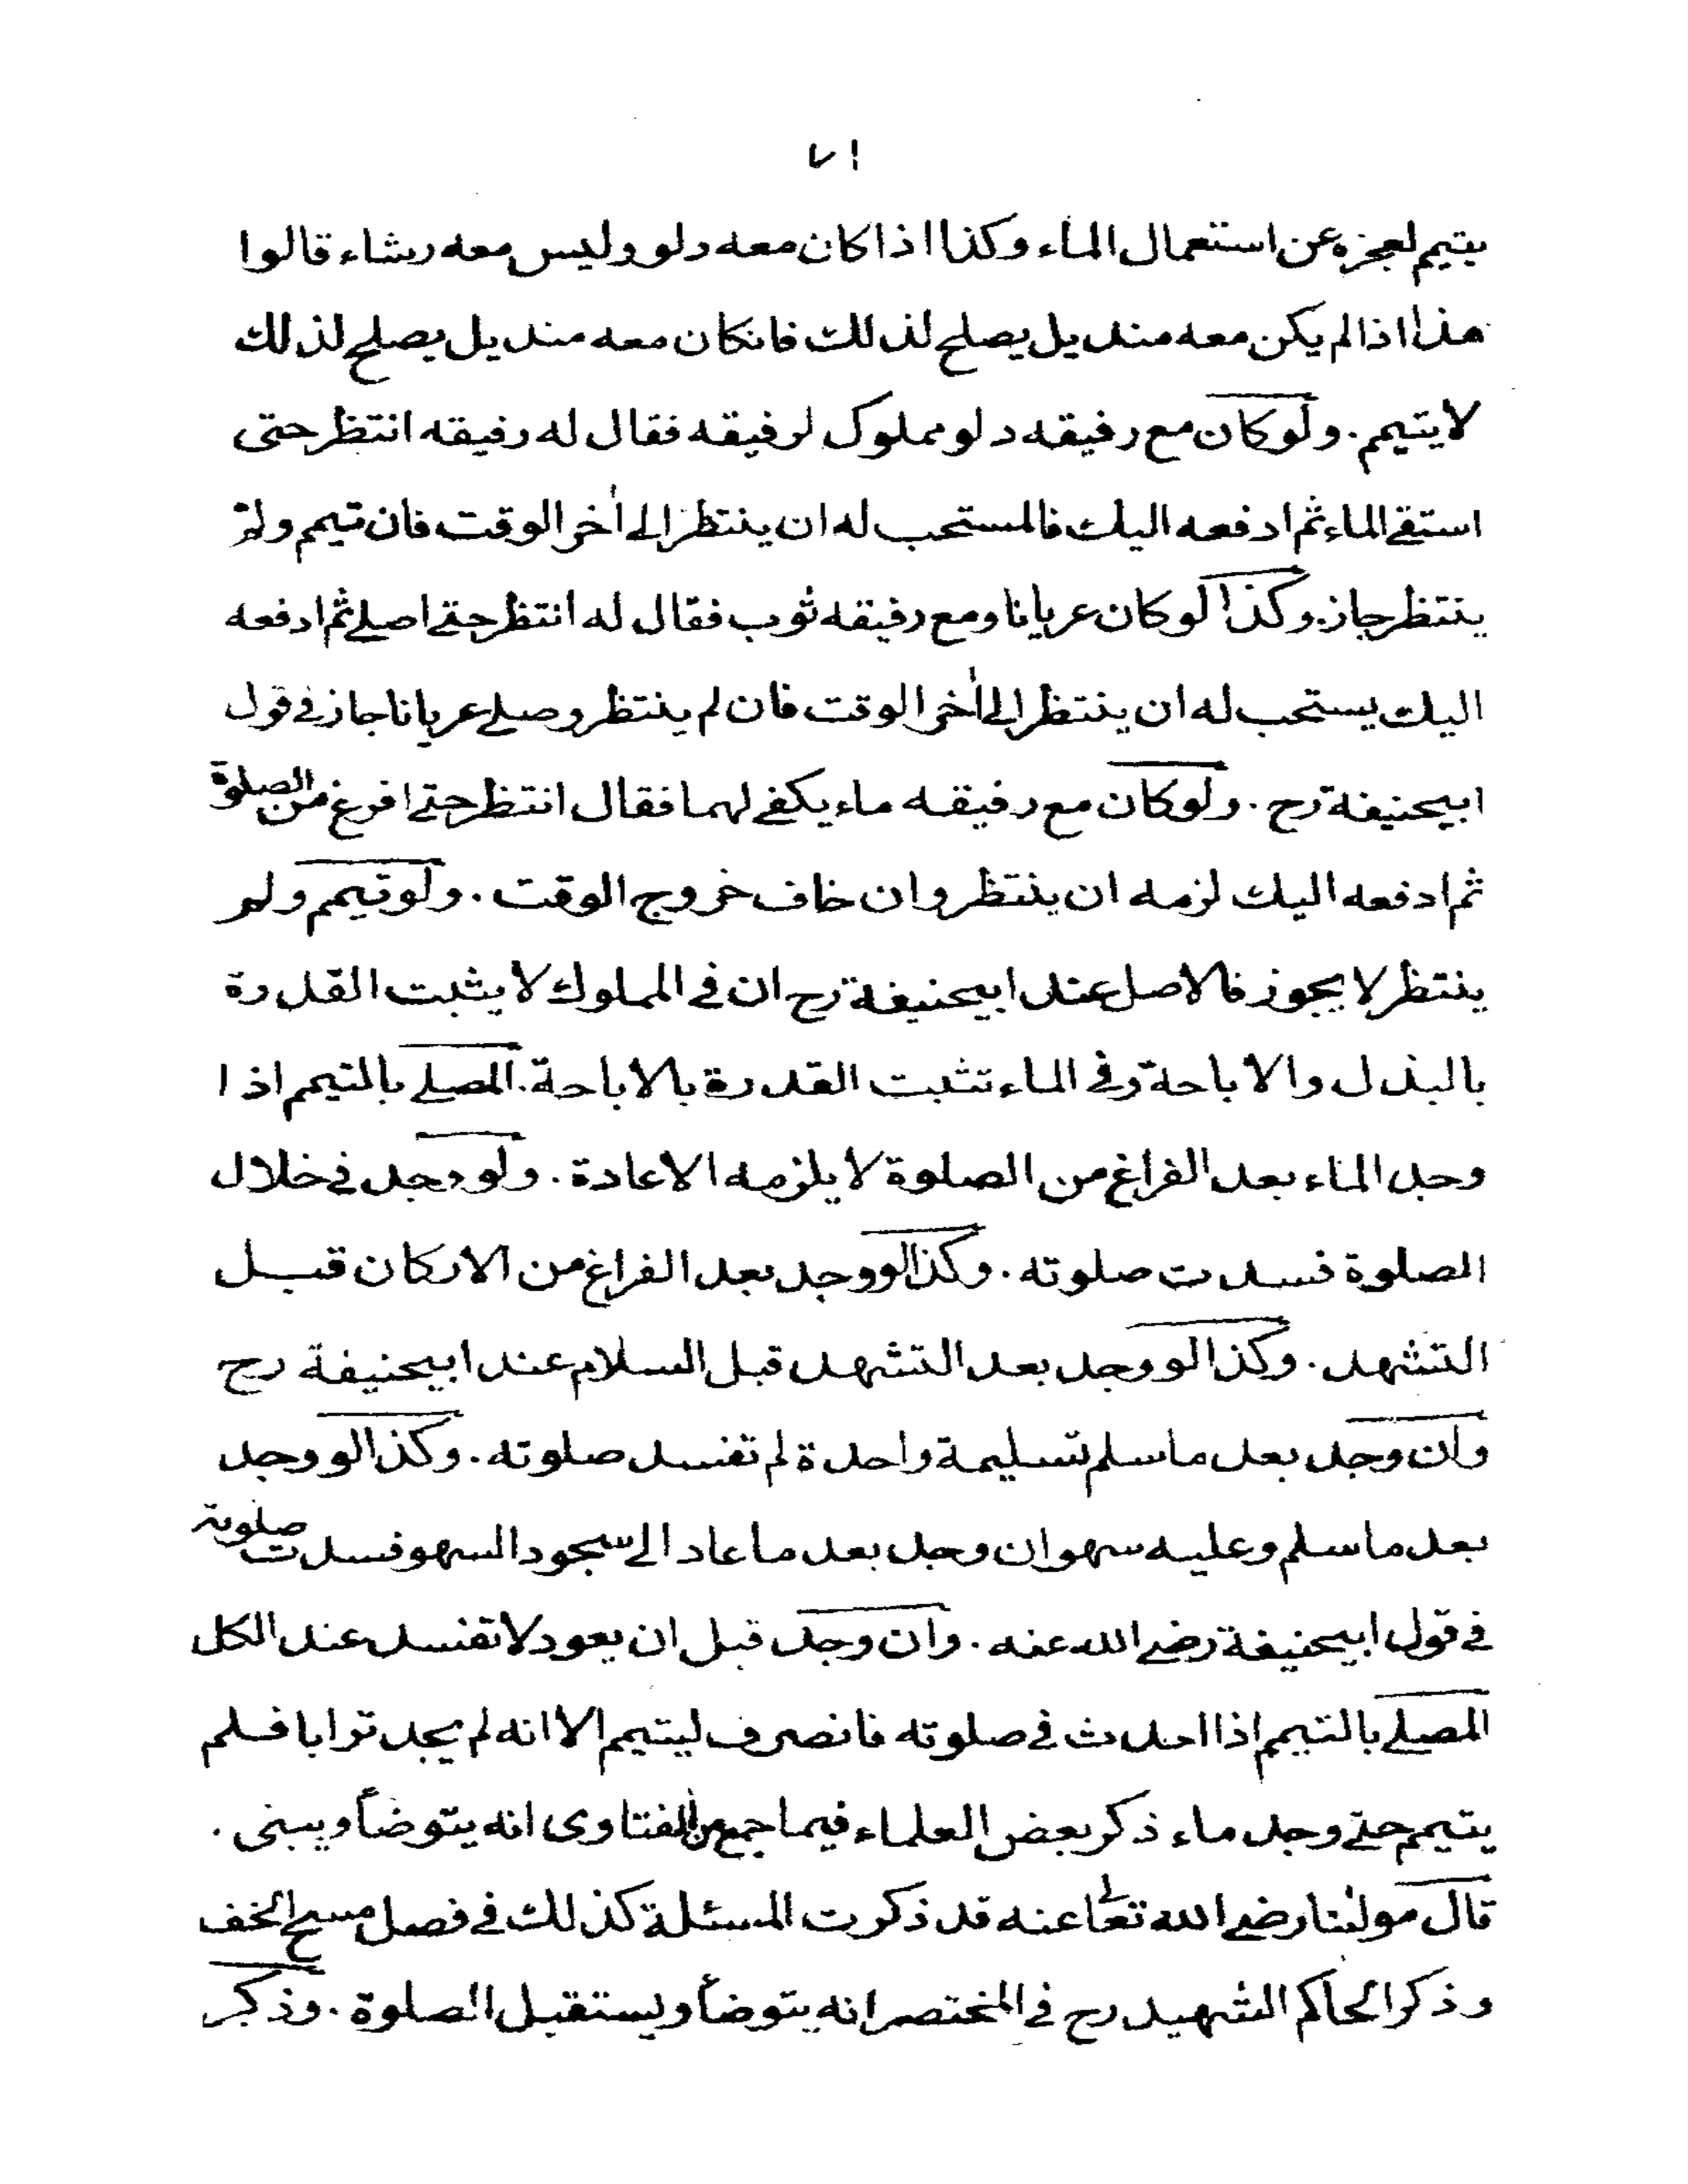 ٧١
يتيمم لعجزه عن استعمال الماء وكذا اذا كان معه دلو وليس معه رشاء قالوا
هذا اذا لم يكن معه منديل يصلح لذلك فانكان معه منديل يصلح لذلك
لا يتيمم . ولو كان مع رفيقه دلو مملوك لرفيقه فقال له رفيقه انتظر حتى
استقي الماء ثم ادفعه اليك فالمستحب له ان ينتظر الى اٰخر الوقت فان تيمم ولم
ينتظر جاز . وكذا لو كان عريانا ومع رفيقه ثوب فقال له انتظر حتے اصلے ثم ادفعه
اليك يستحب له ان ينتظر الے اٰخر الوقت فان لم ينتظر وصلے عريانا جاز فے قول
ابيحنيفة رح . ولو كان مع رفيقه ماء يكفے لهما فقال انتظر حتے افرغ من الصلوة
ثم ادفعه اليك لزمه ان ينتظر وان خاف خروج الوقت . ولو تيمم ولم
ينتظر لا يجوز فالاصل عند ابيحنيفة رح ان في المملوك لا يثبت القدرة
بالبذل والاباحة وفي الماء تثبت القدرة بالاباحة . المصلے بالتيمم اذا
وجد الماء بعد الفراغ من الصلوة لا يلزمه الاعادة . ولو وجد فے خلال
الصلوة فسدت صلوته . وكذا لو وجد بعد الفراغ من الاركان قبل
التشهد . وكذا لو وجد بعد التشهد قبل السلام عند ابيحنيفة رح
وان وجد بعد ما سلم تسليمة واحدة لم تفسد صلوته . وكذا لو وجد
بعد ما سلم وعليه سهو ان وجد بعد ما عاد الے سجود السهو فسدت صلوته
فے قول ابيحنيفة رضے الله عنه . وان وجد قبل ان يعود لا تفسد عند الكل
المصلے بالتيمم اذا احدث فے صلوته فانصرف ليتيمم الا انه لم يجد ترابا فلم
يتيمم حتے وجد ماء ذكر بعض العلماء فيما جمع من الفتاوى انه يتوضأ ويبنى .
قال مولٰنا رضے الله تعالے عنه قد ذكرت المسئلة كذلك فے فصل مسح الخف
وذكر الحاكم الشهيد رح فے المختصر انه يتوضأ ويستقبل الصلوة . وذكر